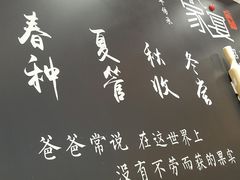 春种
夏管
秋收
冬藏
爸爸常说 在这世界上
没有不劳而获的果实